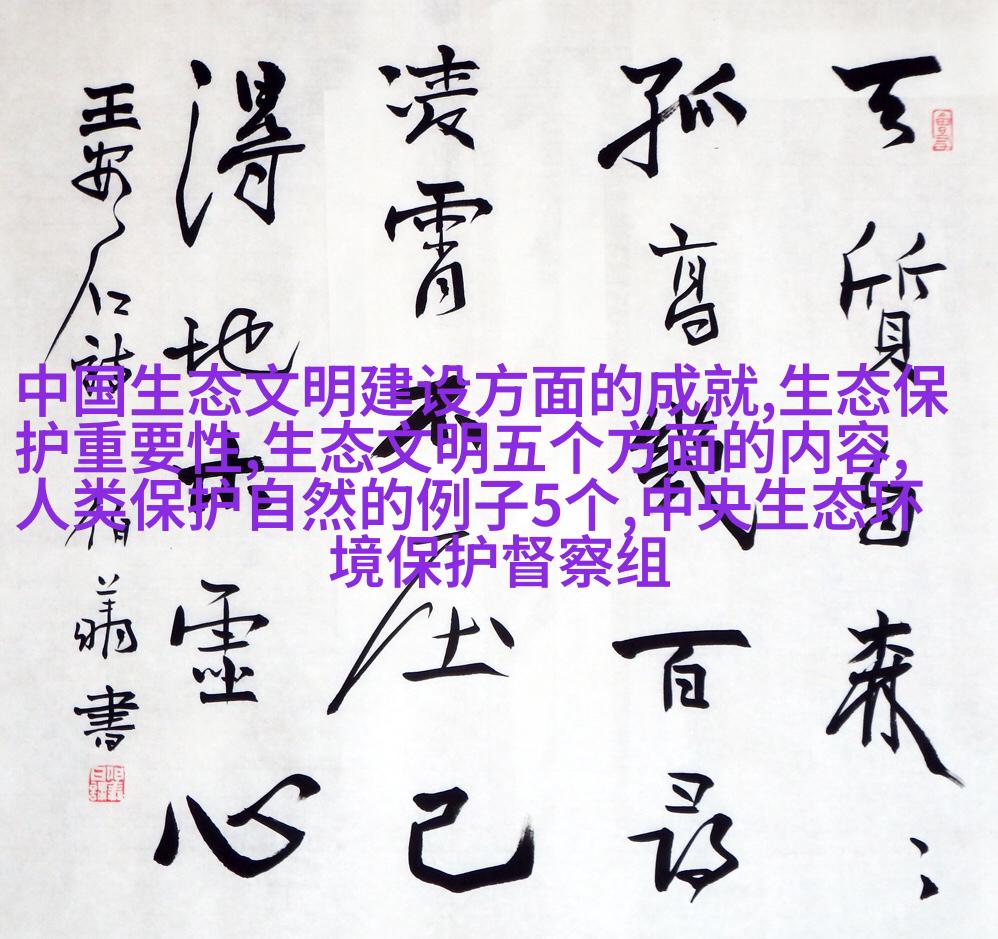 中国生态文明建设方面的成就,生态保
护重要性,生态文明五个方面的内容,
人类保护自然的例子5个,中央生态环
境保护督察组
天質自森〻
孤高幾百尋
凌霄不屈己
得地本虛心
王安石詩 書